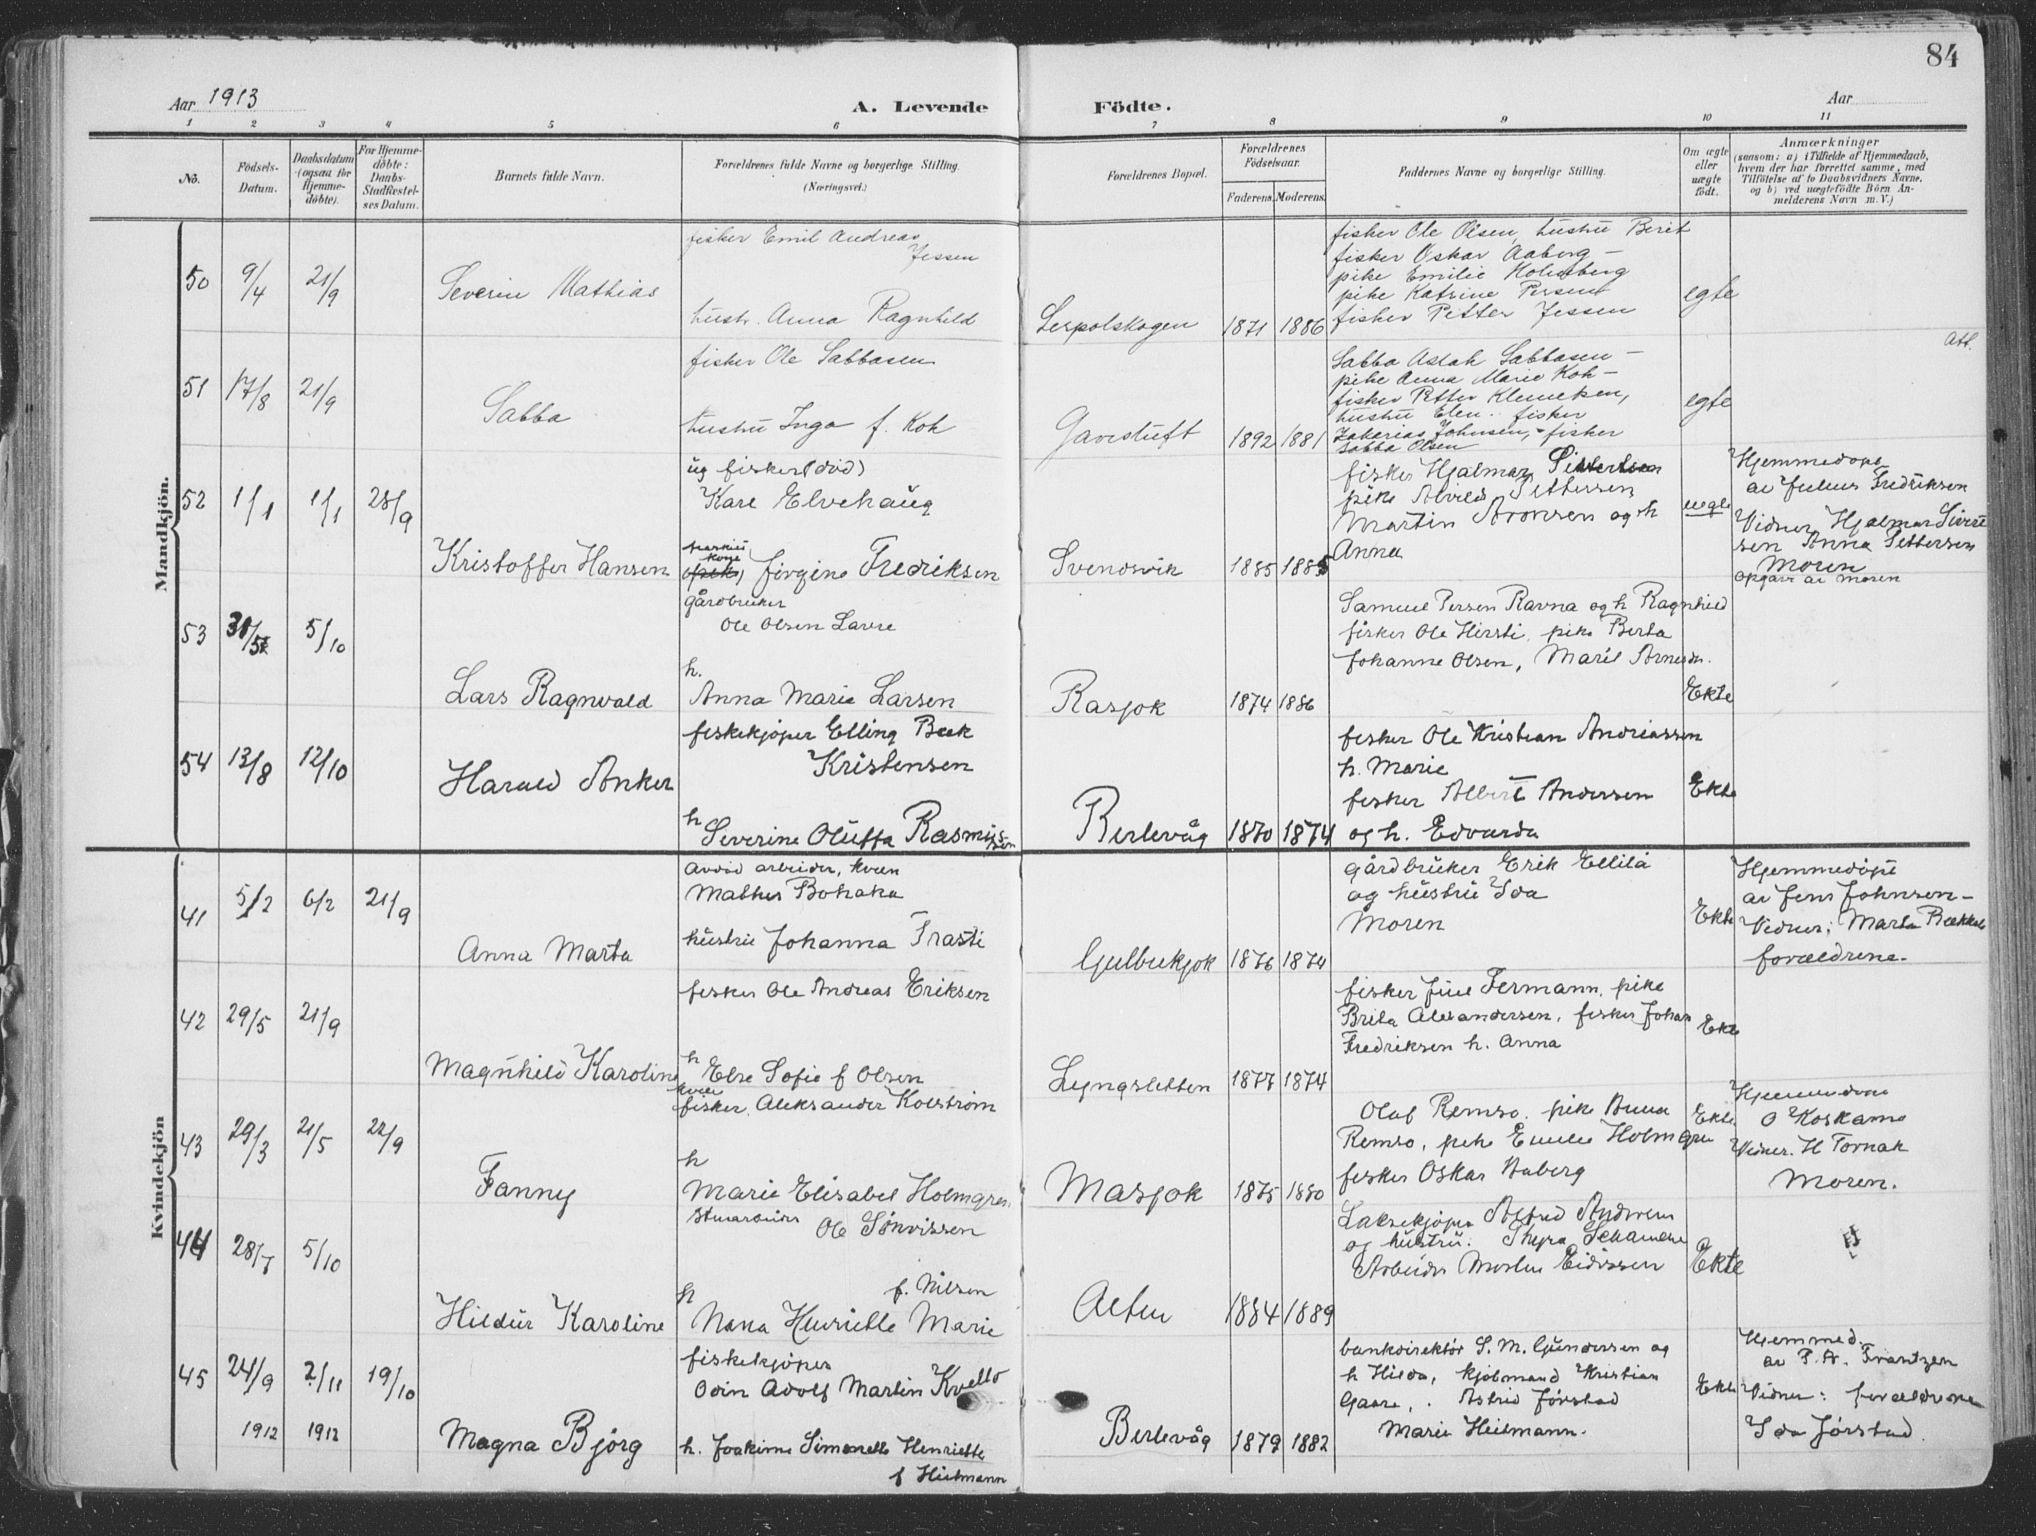 84
Aar 1913
A. Levende
Födte.
Aar
1 2 3 4 5 6 7 8 9 10 11
No.
Födsels-
Datum.
Daabsdatum
(ogsaa for
Hjemme-
döbte).
For Hjemme-
döbte:
Daabs-
Stadfæstel-
ses Datum.
Barnets fulde Navn.
Forældrenes fulde Navne og borgerlige Stilling.
(Næringsvei.)
Forældrenes Bopæl.
Forældrenes
Födselsaar.
Faderens. Moderens.
Faddernes Navne og borgerlige Stilling.
Om ægte
eller
uægte
født.
Anmærkninger
(saasom: a) i Tilfælde af Hjemmedaab,
hvem der har forrettet samme, med
Tilföielse af to Daabsvidners Navne,
og b) ved uægtefödte Börn An-
melderens Navn m. V.)
Mandkjön.
50 9/4 21/9
Severin Mathias
fisker Emil Andreas
Jessen
hustr. Anna Ragnhild
1871 1886
fisker Ole Olsen, hustru Berit
fisker Oskar Aaberg –
pike Emilie Holmberg
pike Katrine Persen
fisker Petter Jessen
egte
51 17/8 21/9
Sabba
fisker Ole Sabbasen
hustru Inga f. Koh
1892 1881
Sabba Aslak Sabbasen –
pike Anna Marie Koh –
fisker Petter Klemetsen,
hustru Elen. fisker
Zakarias Johnsen, fisker
Sabba Olsen
egte
52 1/1 1/1 28/9
Kristoffer Hansen
ug fisker (død)
Kare Elvehaug
kone
Jirgine Fredriksen
Svendsvik
1885 1885
fisker Hjalmar
pike Alvild Pettersen
Martin Aronsen og h
Anna
uegte
Hjemmedøpt
av Julius Fredriksen
Vidner Hjalmar Sivert
sen Anna Pettersen
Moren
opgave av moren
53 5/10
Lars Ragnvald
gårdbruker
Ole Olsen Lavre
h.
Anna Marie Larsen
Rasjok
1874 1886
Samuel Persen Ravna og h Ragnhild
fisker Ole Hirsti, pike Berta
Johanne Olsen, Marit Arnesdr.
Ekte
54 13/8 12/10
Harald Anker
fiskekjøper Elling Beck
Kristensen
h
Severine Oluffa Rasmus-
sen
Berlevåg
1870 1874
fisker Ole Kristian Andreassen
h. Marie
fisker Albert Andersen
og h. Edvarda
Ekte
Kvindekjön
41 5/2 6/2 21/9
Anna Marta
Avdød arbeider, kvæn
Mathis Bohaka
hustru Johanna Trasti
Gulbukjok
1876 1874
gårdbruker Erik Ellilä
og hustru Ida
Moren
Ekte
Hjemmedøpt
av Jens Johnsen –
Vidner: Marta Bækkel
forældrene.
42 29/5 21/9
Magnhild Karoline
fisker Ole Andreas Eriksen
h Else Sofie f Olsen
Lyngsletten
1877 1874
fisker Juul Fermann, pike
Brita Alexandersen, fisker Johan
Fredriksen h. Anna
Ekte
43 29/3 21/5 22/9
Fanny
kvæn
fisker Aleksander Kolström
h
Marie Elisabet Holmgren
Masjok
1875 1880
Olaf Remso. pike Anna
Remso, pike Emilie Holmgren
fisker Oskar Aaberg
Ekte
Hjemmedøpt
O Koskamo
Vidner. H Tornak
Moren.
44 28/7 5/10
Hildur Karoline
Ole Sønvissen
f. Nilsen
h
Nana Henriette Marie
Alten
1884 1889
Laksekjøper Alfred Andersen
og hustru. Thyra
Arbeider Morten Eidissen
Ekte
45 24/9 2/11 19/10
1912 1912
Magna Björg
fiskekjøper
Odin Adolf Martin Kvello
h. Joakime Simonette Henriette
f Heitmann
Berlevåg
1879 1882
bankdirektör S. M. Gundersen og
h Hilda, kjöbmand Kristian
Gaare, . Astrid Jørstad
Marie Heitmann.
Ekte
Hjemmed.
av P. A. Frantzen
Vidner: forældrene
Ida Jørstad.